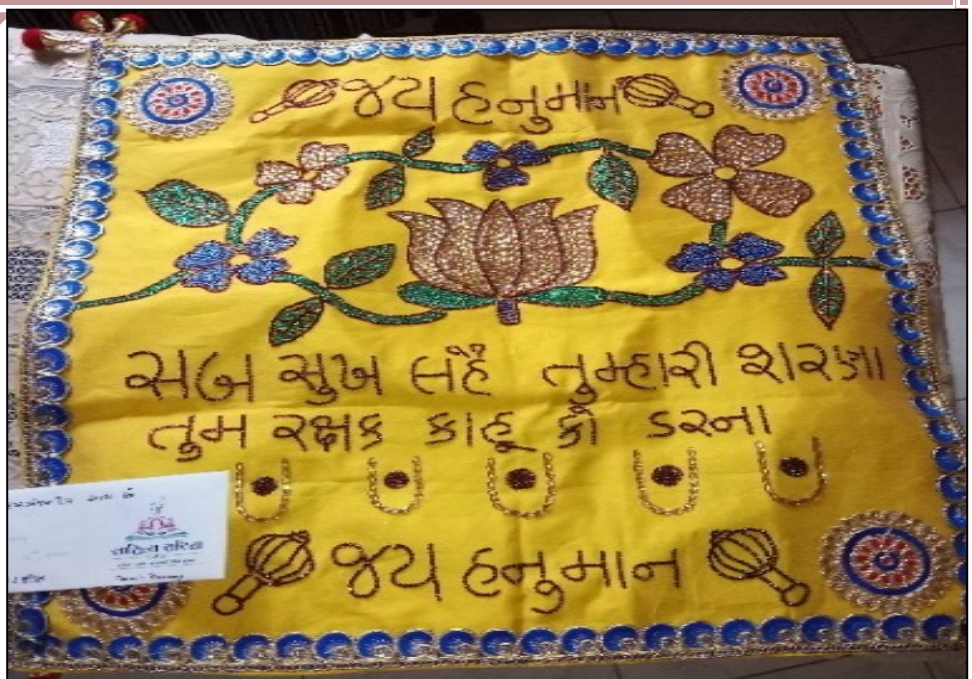 જય હનુમાન
સબ સુખ લહૈં તુમ્હારી શરણા
તુમ રક્ષક કાહૂ કૌ ડરના
જય હનુમાન